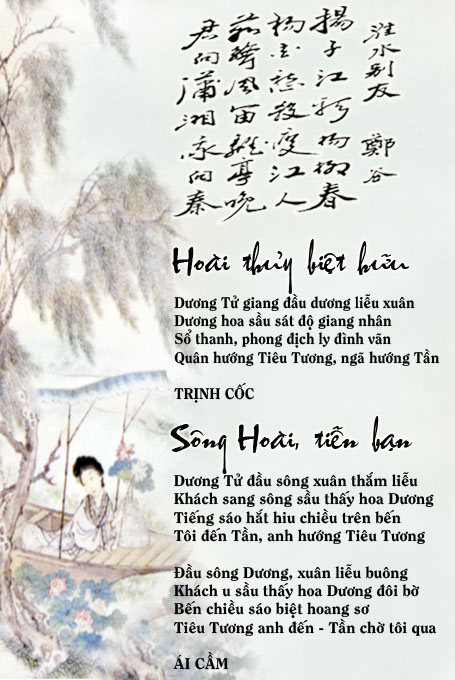 淮水別友 鄭谷
揚子江頭楊柳春
楊花愁殺渡江人
數聲風笛離亭晚
君向瀟湘我向秦
Hoài thủy biệt hữu
Dương Tử giang đầu dương liễu xuân
Dương hoa sầu sát độ giang nhân
Sổ thanh, phong địch ly đình vãn
Quân hướng Tiêu Tương, ngã hướng Tần
TRỊNH CỐC
Sông Hoài, tiễn bạn
Dương Tử đầu sông xuân thắm liễu
Khách sang sông sầu thấy hoa Dương
Tiếng sáo hắt hiu chiều trên bến
Tôi đến Tần, anh hướng Tiêu Tương
Đầu sông Dương, xuân liễu buông
Khách u sầu thấy hoa Dương đôi bờ
Bến chiều sáo biệt hoang sơ
Tiêu Tương anh đến - Tần chờ tôi qua
ÁI CẦM